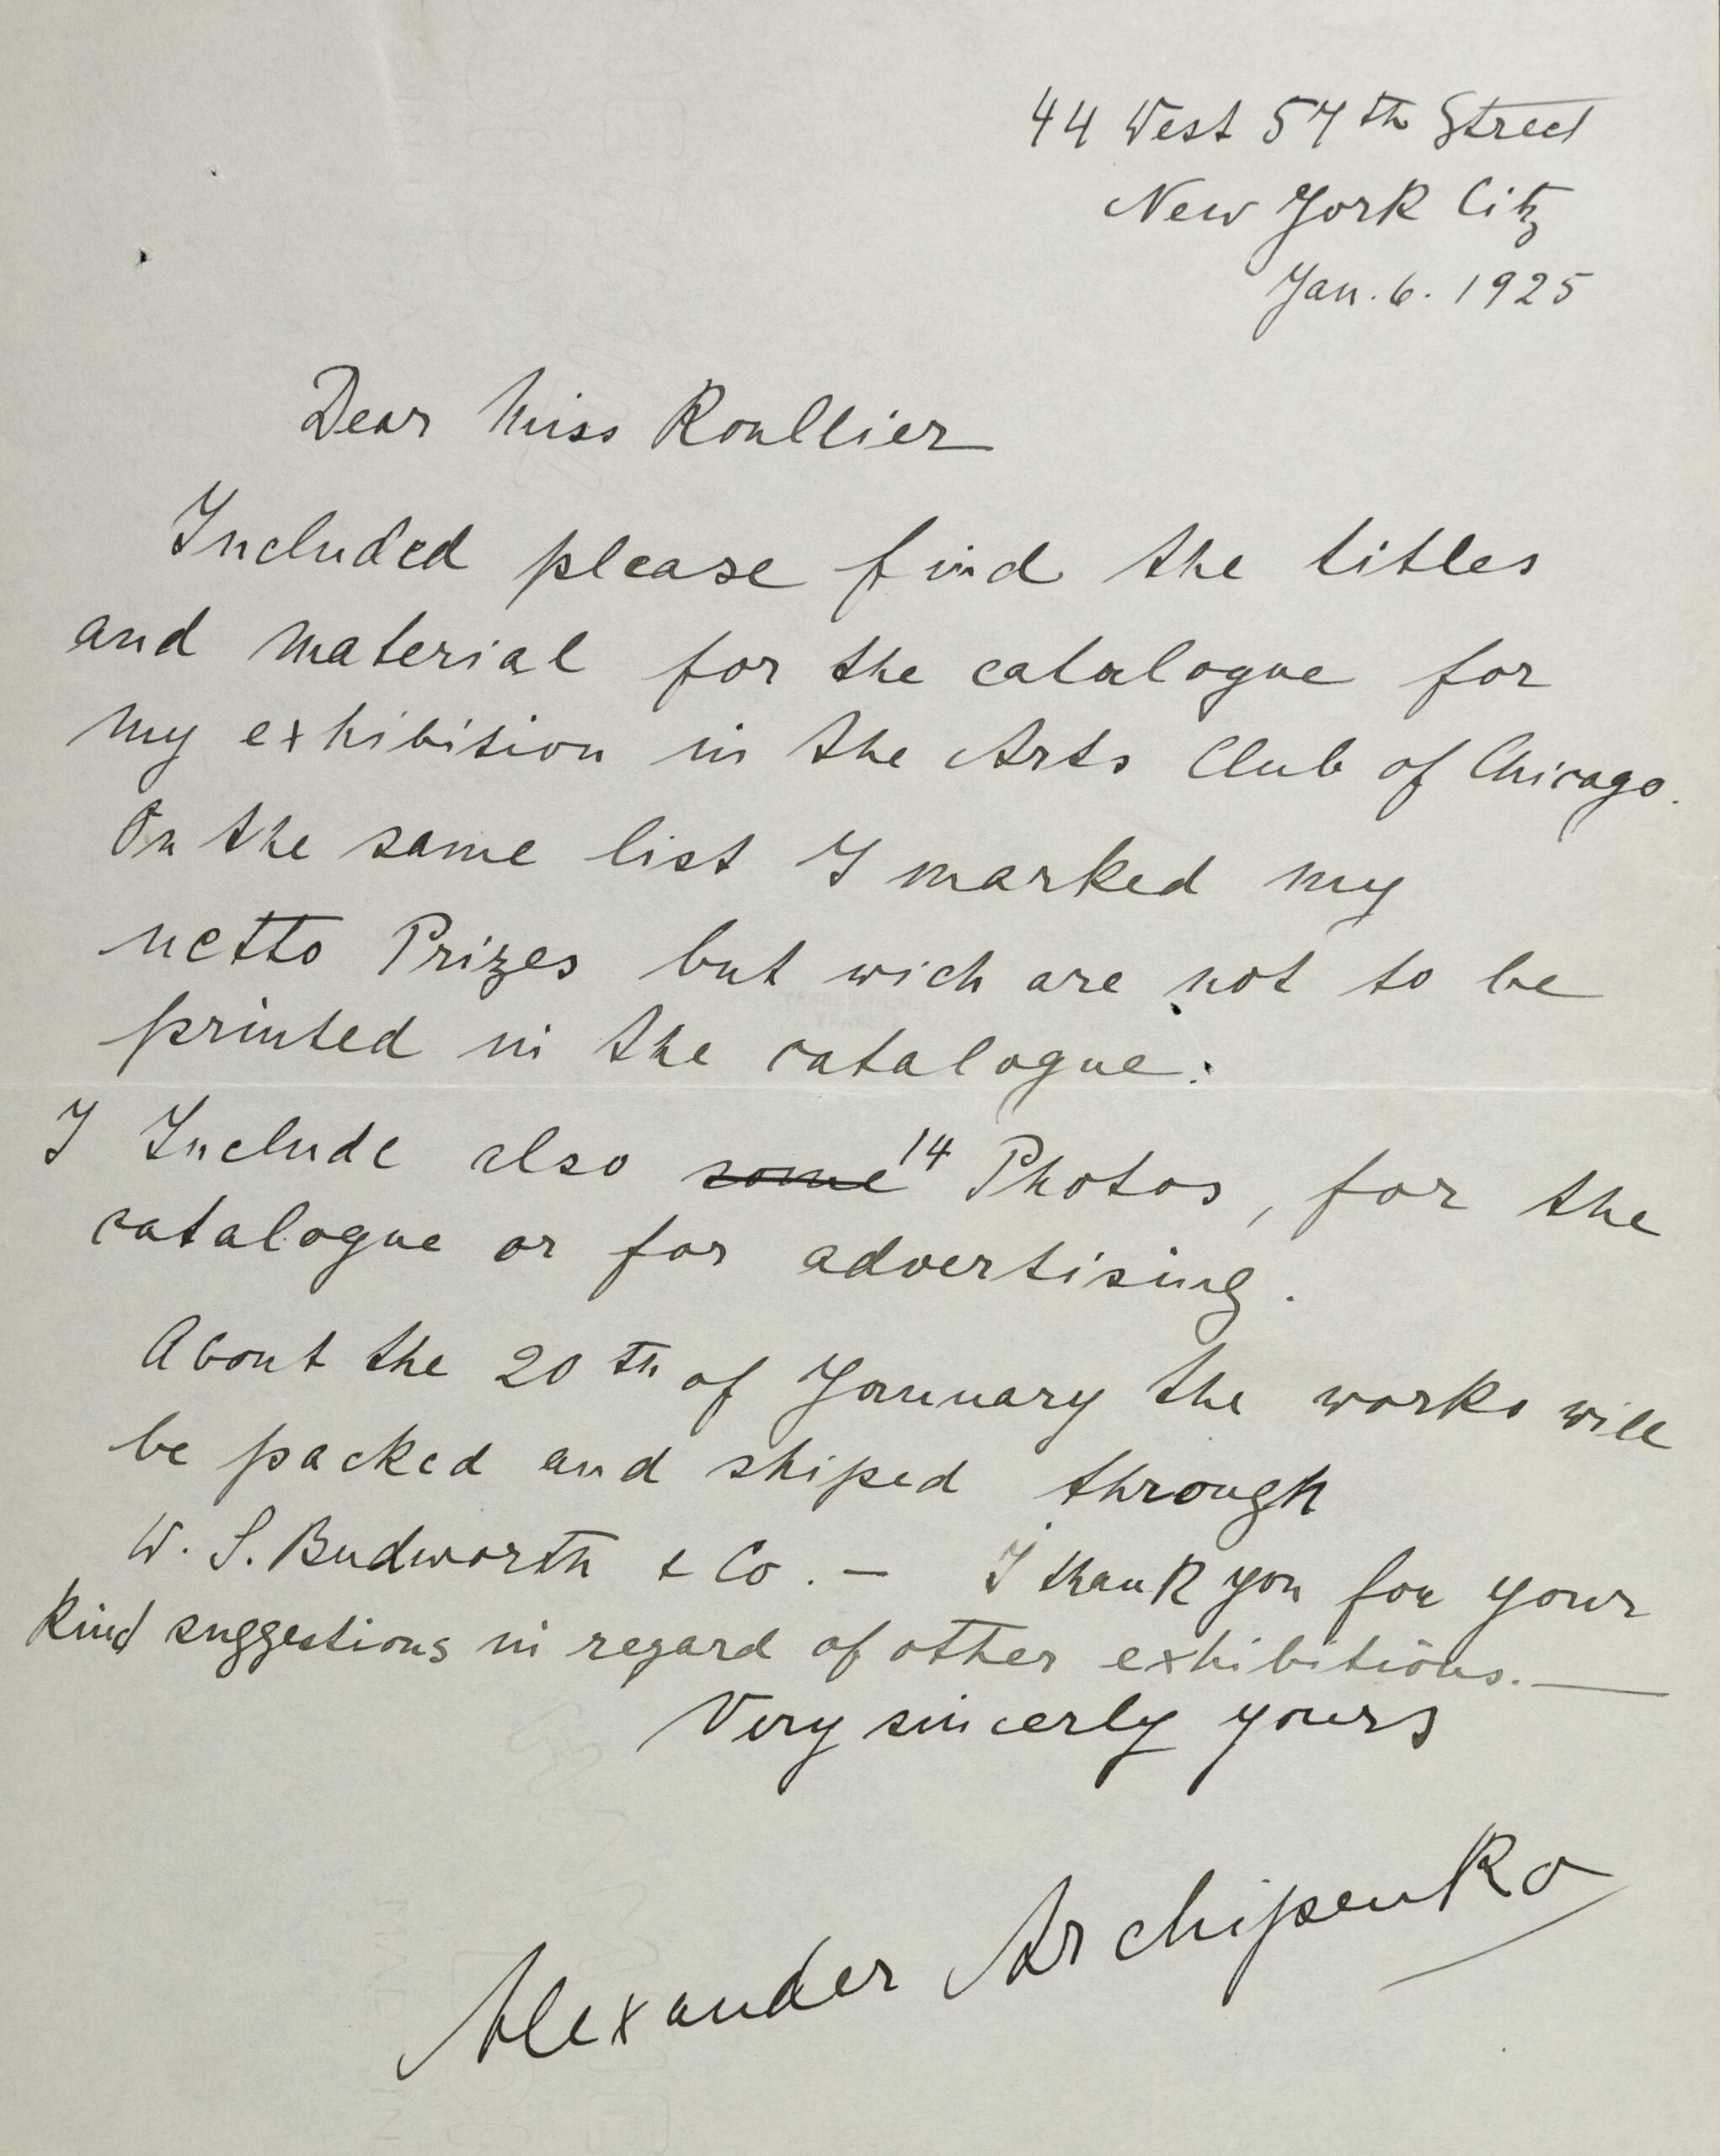 44 West 57th Street
New York City
Jan. 6. 1925
Dear Miss Roullier
Included please find the titles
and material for the catalogue for
my exhibition in the Arts Club of Chicago.
On the same list I marked my
netto Prizes but wich are not to be
printed in the catalogue.
I Include also some 14 Photos, for the
catalogue or for advertising.
About the 20th of January the works will
be packed and shiped through
W. S. Budworth & Co. — I thank you for your
kind suggestions in regard of other exhibitions. —
Very sincerly yours
Alexander Archipenko